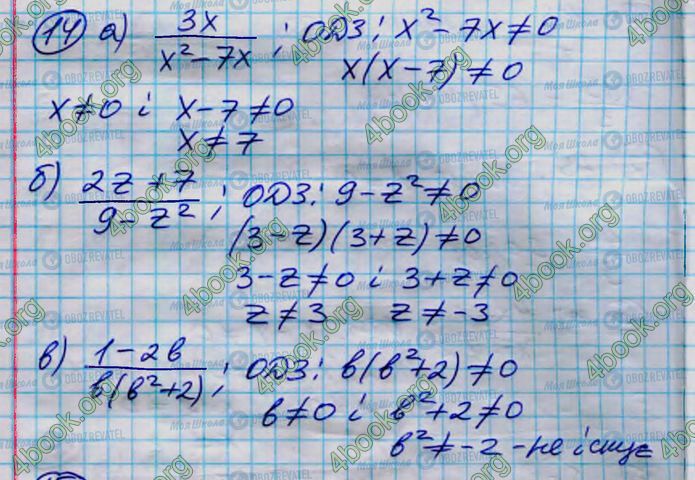 14 а) 3x / x² - 7x ; ОДЗ: x² - 7x ≠ 0
x(x - 7) ≠ 0
x ≠ 0 і x - 7 ≠ 0
x ≠ 7
б) 2z + 7 / 9 - z² ; ОДЗ: 9 - z² ≠ 0
(3 - z)(3 + z) ≠ 0
3 - z ≠ 0 і 3 + z ≠ 0
z ≠ 3 z ≠ -3
в) 1 - 2в / в(в² + 2) ; ОДЗ: в(в² + 2) ≠ 0
в ≠ 0 і в² + 2 ≠ 0
в² ≠ -2 - не існує
4book.org
Моя Школа
OBOZREVATEL